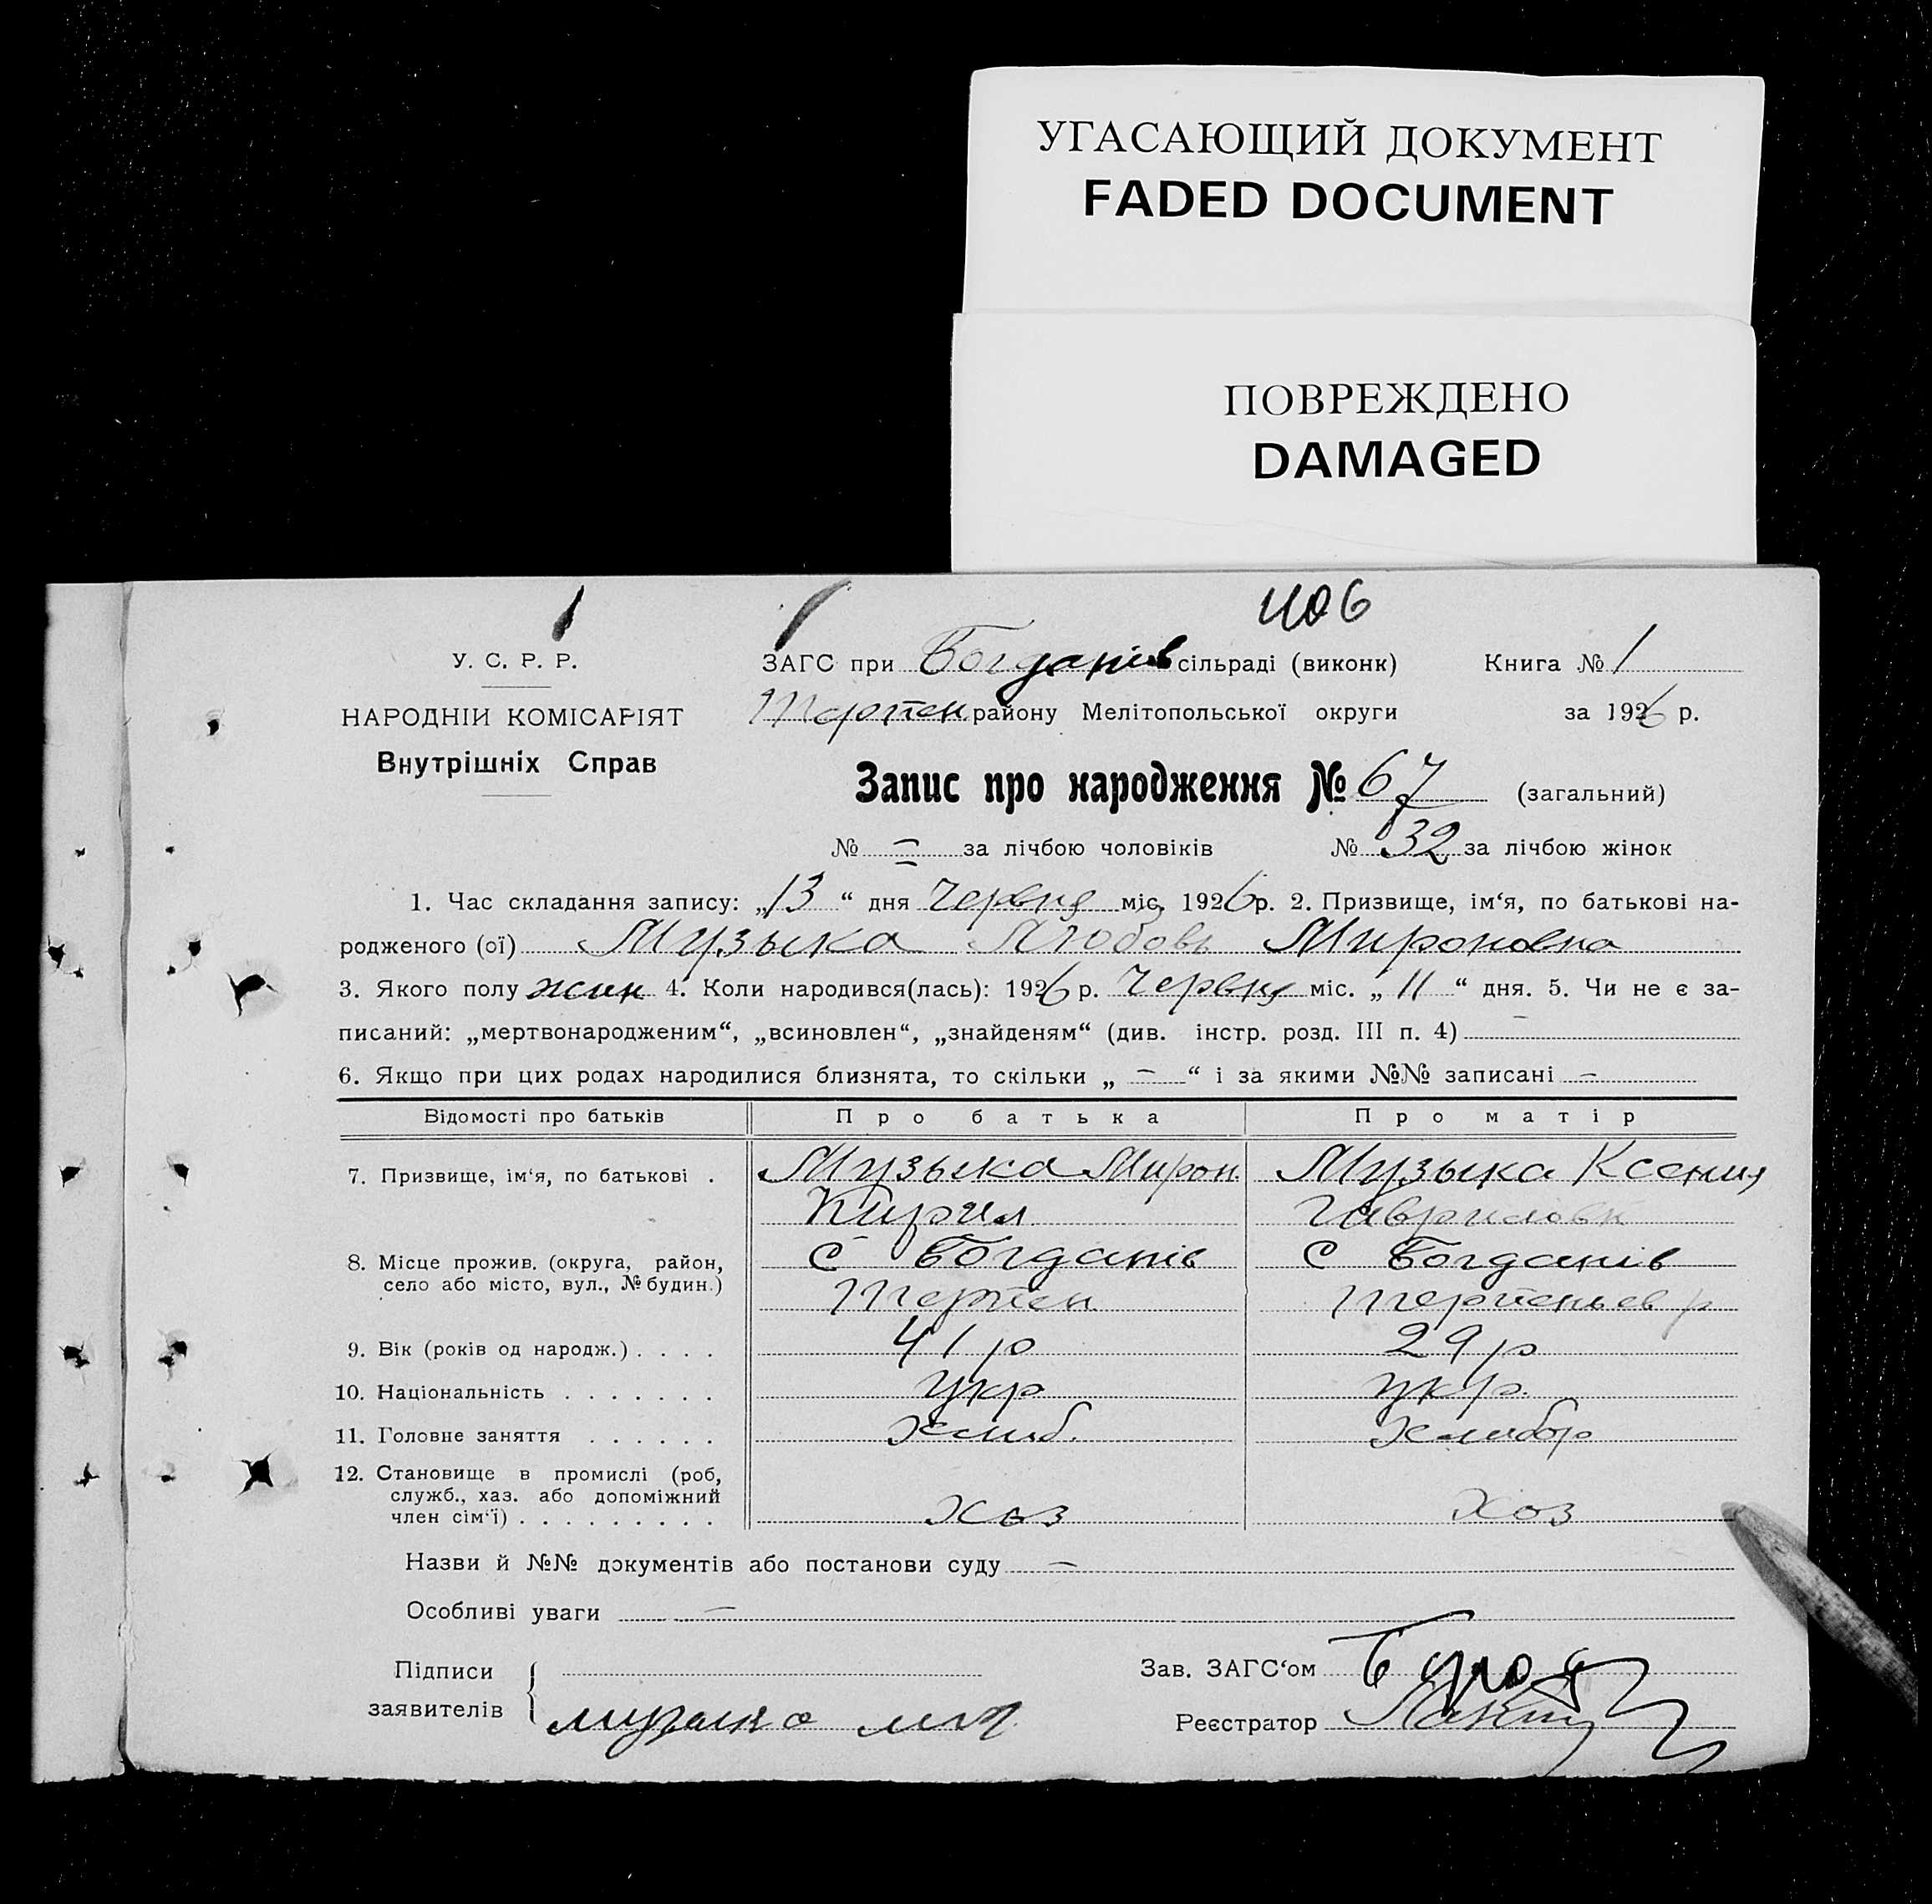 УГАСАЮЩИЙ ДОКУМЕНТ
FADED DOCUMENT
ПОВРЕЖДЕНО
DAMAGED
406
У. С. Р. Р.
НАРОДНІЙ КОМІСАРІЯТ
Внутрішніх Справ
ЗАГС при Богданів сільраді (виконк) Книга № 1
Терпен району Мелітопольської округи за 1926 р.
Запис про народження № 67 (загальний)
№ = за лічбою чоловіків № 32 за лічбою жінок
1. Час складання запису: „13“ дня Червня міс. 1926 р. 2. Призвище, ім‘я, по батькові на-
родженого (ої) Музыка Любовь Мироновна
3. Якого полу жин 4. Коли народився(лась): 1926 р. Червня міс. „11“ дня. 5. Чи не є за-
писаний: „мертвонародженим“, „всиновлен“, „знайденям“ (див. інстр. розд. III п. 4) –
6. Якщо при цих родах народилися близнята, то скільки „ – “ і за якими №№ записані –
Відомості про батьків Про батька Про матір
7. Призвище, ім‘я, по батькові . Музыка Мирон. Музыка Ксения
Кирил Гавриловн
8. Місце прожив. (округа, район, с Богданів с Богданів
село або місто, вул., № будин.) Терпен Терпеньев р
9. Вік (років од народж.) . . . . 41 р 29 р
10. Національність . . . . . . . укр укр.
11. Головне заняття . . . . . . хлиб. хлибор
12. Становище в промислі (роб,
служб., хаз. або допоміжний
член сім‘ї) . . . . . . . . . хоз хоз
Назви й №№ документів або постанови суду –
Особливі уваги –
Підписи Зав. ЗАГС‘ом
заявителів музика Реєстратор